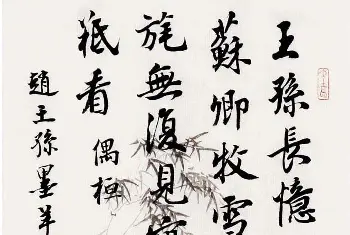 王孫長憶
蘇卿牧雪
旄無復見
秪看偶極
趙王孫墨羊